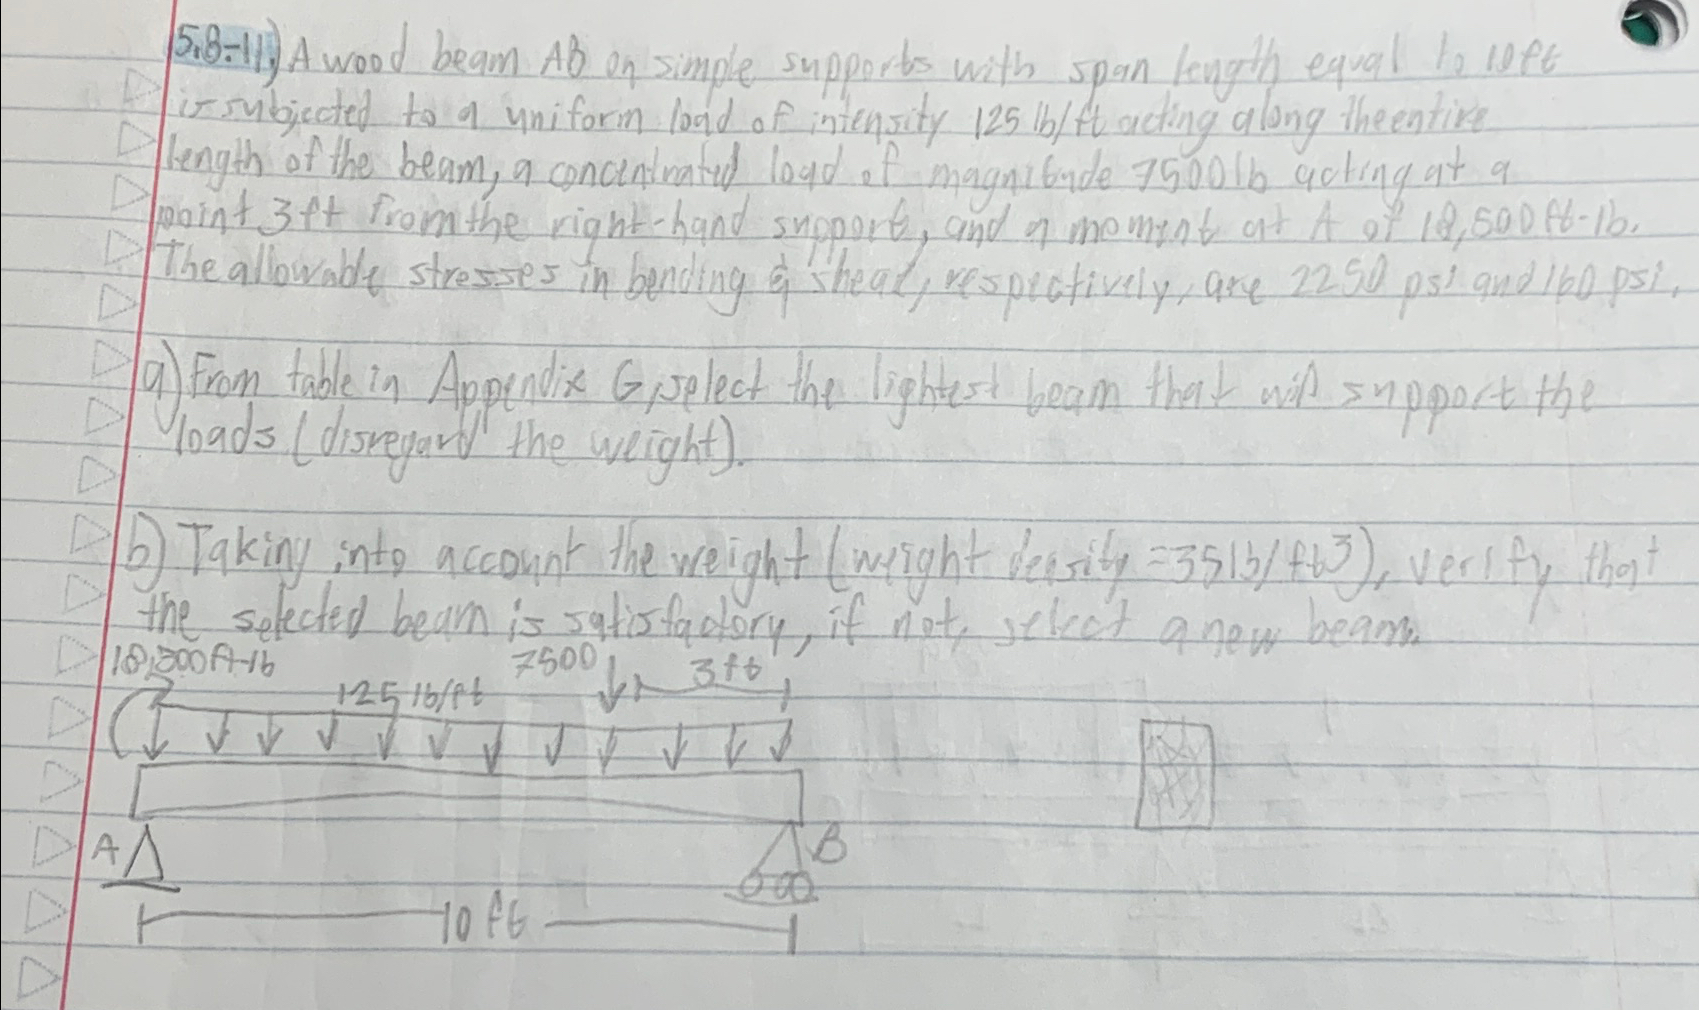 5.8-11.) A wood beam AB on simple supports with span length equal to 10ft
is subjected to a uniform load of intensity 125 lb/ft acting along the entire
length of the beam, a concentrated load of magnitude 7500lb acting at a
point 3ft from the right-hand support, and a moment at A of 18,500 ft-lb.
The allowable stresses in bending & shear, respectively, are 2250 psi and 160 psi.
a) From table in Appendix G, select the lightest beam that will support the
loads (disregard the weight).
b) Taking into account the weight (weight density =35lb/ft3), verify that
the selected beam is satisfactory, if not, select a new beam.
18,500ft-lb
7500
3ft
125 lb/ft
A
B
10 ft